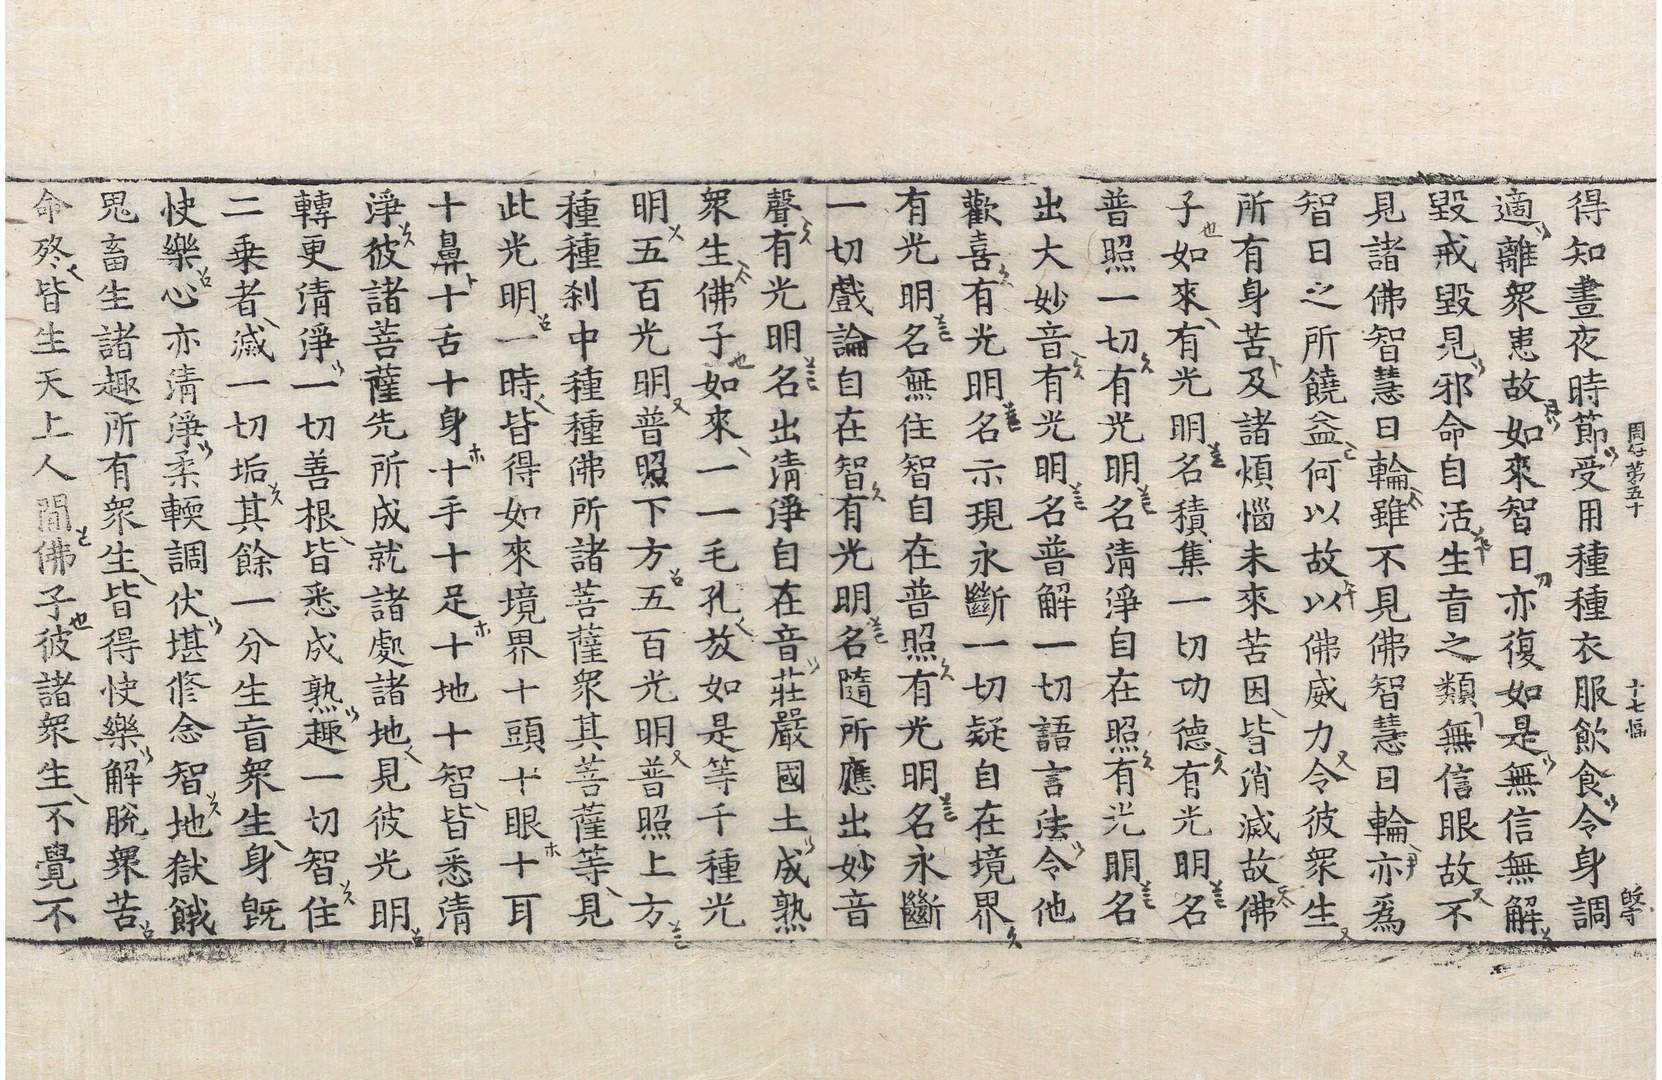 得知晝夜時節受用種種衣服飲食令身調
適離衆患故如來智日亦復如是無信無解
毀戒毀見邪命自活生盲之類無信眼故不
見諸佛智慧日輪雖不見佛智慧日輪亦為
智日之所饒益何以故以佛威力令彼衆生
所有身苦及諸煩惱未來苦因皆消滅故佛
子如來有光明名積集一切功德有光明名
普照一切有光明名清淨自在照有光明名
出大妙音有光明名普解一切語言法令他
歡喜有光明名示現永斷一切疑自在境界
有光明名無住智自在普照有光明名永斷
一切戲論自在智有光明名隨所應出妙音
聲有光明名出清淨自在音莊嚴國土成熟
衆生佛子如來一一毛孔放如是等千種光
明五百光明普照下方五百光明普照上方
種種刹中種種佛所諸菩薩衆其菩薩等見
此光明一時皆得如來境界十頭十眼十耳
十鼻十舌十身十手十足十地十智皆悉清
淨彼諸菩薩先所成就諸處諸地見彼光明
轉更清淨一切善根皆悉成熟趣一切智住
二乘者滅一切垢其餘一分生盲衆生身旣
快樂心亦清淨柔輭調伏堪修念智地獄餓
鬼畜生諸趣所有衆生皆得快樂解脫衆苦
命終皆生天上人間佛子彼諸衆生不覺不